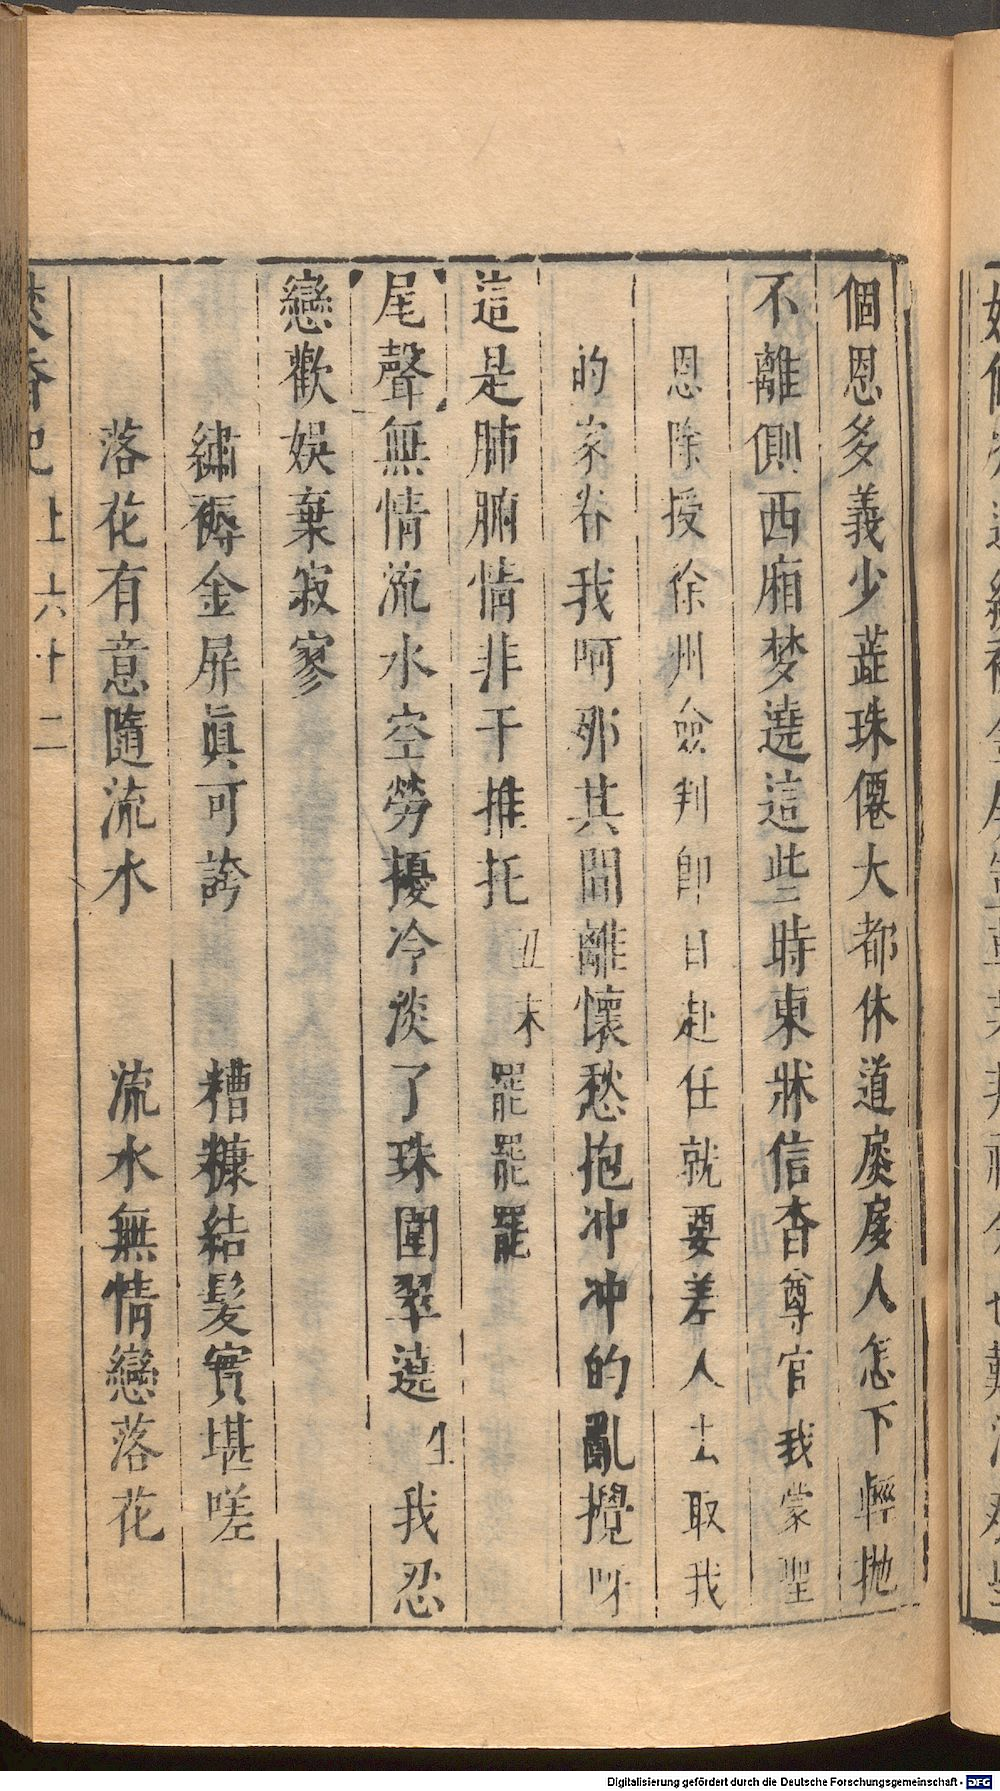 個恩多義少蓝珠僊大都休道扊扅人怎下輕抛
不離側西廂梦遶這些時東牀信杳尊官我蒙聖
恩除授徐州僉判即日赴任就要差人去取我
的家眷我呵那其間離懷愁抱冲冲的亂攪呀
這是肺腑情非干推托丑末罷罷罷
尾聲無情流水空勞擾冷淡了珠圍翠遶生我忍
戀歡娛棄寂寥
繡褥金屏眞可誇 糟糠結髪實堪嗟
落花有意隨流水 流水無情戀落花
香記 上 六十二
Digitalisierung gefördert durch die Deutsche Forschungsgemeinschaft - DFG